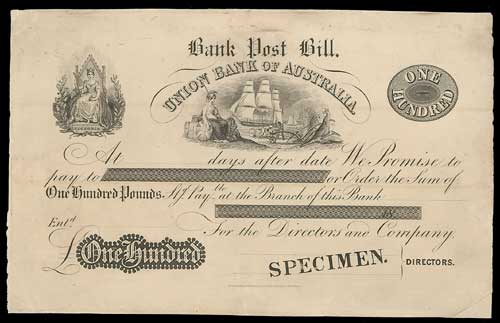 Bank Post Bill.
UNION BANK OF AUSTRALIA.
VICTORIA
ONE
HUNDRED
At days after date We Promise to
pay to or Order the Sum of
One Hundred Pounds Stg. Pay.ble at the Branch of this Bank
Ent.d
For the Directors and Company.
£ One Hundred
SPECIMEN.
DIRECTORS.